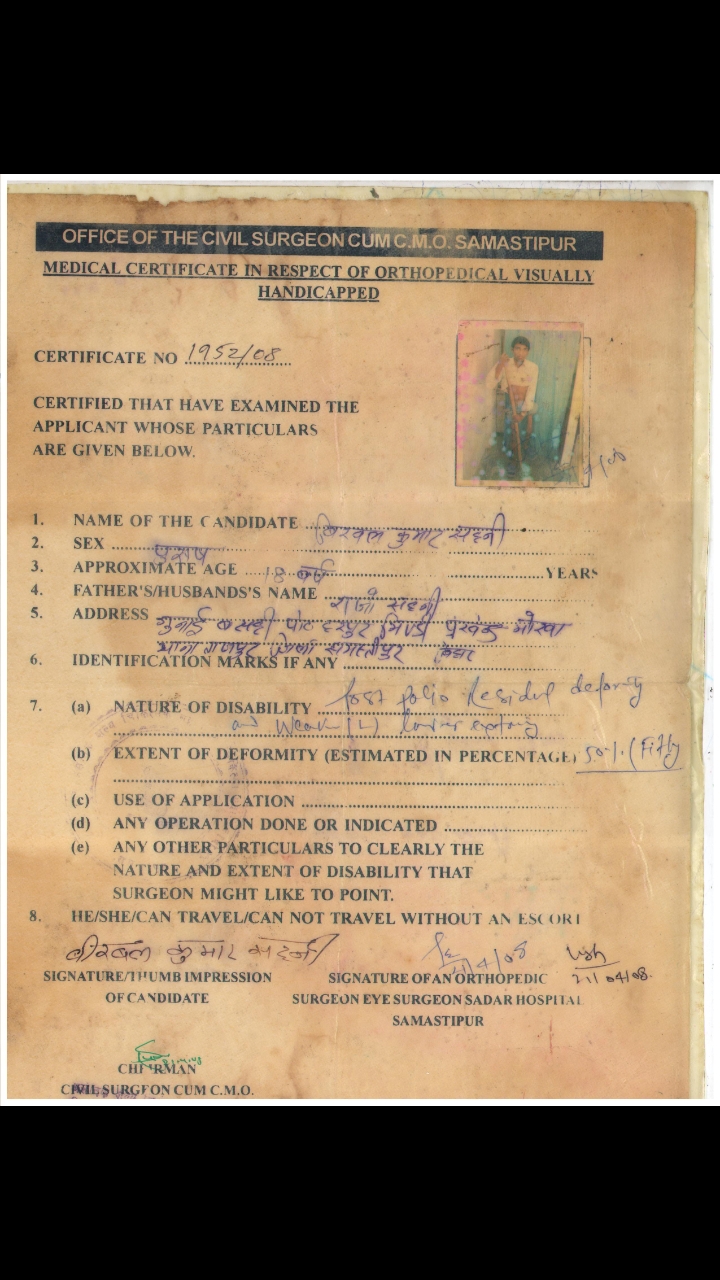 OFFICE OF THE CIVIL SURGEON CUM C.M.O. SAMASTIPUR
MEDICAL CERTIFICATE IN RESPECT OF ORTHOPEDICAL VISUALLY
HANDICAPPED
CERTIFICATE NO 1952/08
CERTIFIED THAT HAVE EXAMINED THE
APPLICANT WHOSE PARTICULARS
ARE GIVEN BELOW.
1. NAME OF THE CANDIDATE बिरबल कुमार सहनी
2. SEX पुरुष
3. APPROXIMATE AGE 18 वर्ष YEARS
4. FATHER'S/HUSBANDS'S NAME राजो सहनी
5. ADDRESS गुनाई बसही पो० हरपुर भिण्डी प्रखंड मोरवा
थाना ताजपुर जिला समस्तीपुर बिहार
6. IDENTIFICATION MARKS IF ANY
7. (a) NATURE OF DISABILITY Post polio Residul deformity
and Weak (L) lower
(b) EXTENT OF DEFORMITY (ESTIMATED IN PERCENTAGE) 50% (Fifty
(c) USE OF APPLICATION
(d) ANY OPERATION DONE OR INDICATED
(e) ANY OTHER PARTICULARS TO CLEARLY THE
NATURE AND EXTENT OF DISABILITY THAT
SURGEON MIGHT LIKE TO POINT.
8. HE/SHE/CAN TRAVEL/CAN NOT TRAVEL WITHOUT AN ESCORT
बीरबल कुमार सहनी 21/4/08 21/04/08
SIGNATURE/THUMB IMPRESSION SIGNATURE OF AN ORTHOPEDIC
OF CANDIDATE SURGEON EYE SURGEON SADAR HOSPITAL
SAMASTIPUR
CHAIRMAN
CIVIL SURGEON CUM C.M.O.